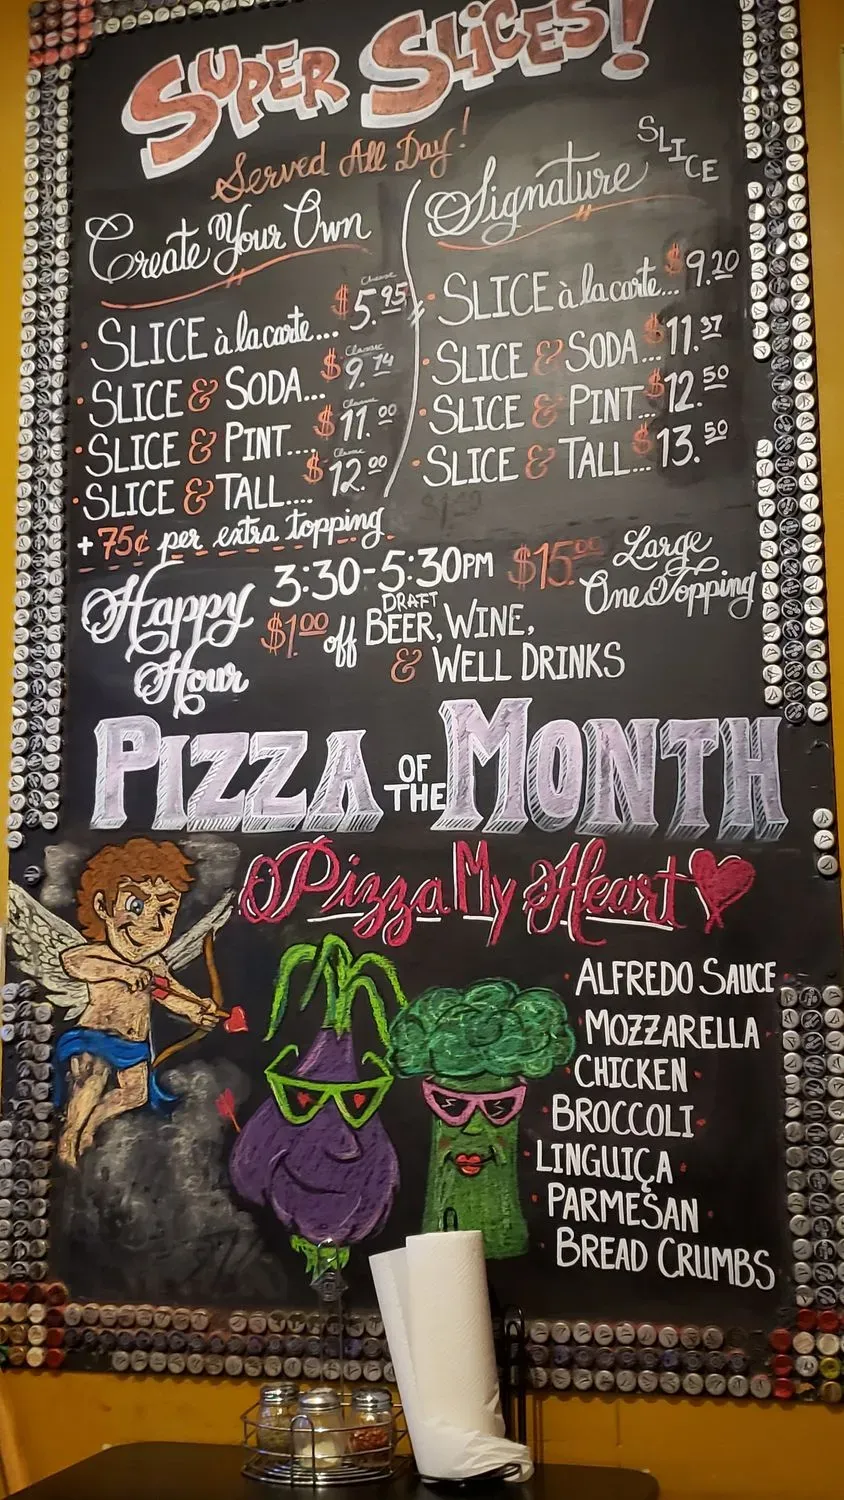 SUPER SLICES!
Served All Day!
Create Your Own
SLICE à la carte... $5.95
Classic
SLICE & SODA... $9.74
Classic
SLICE & PINT.... $11.00
Classic
SLICE & TALL.... $12.00
+ 75¢ per extra topping
Signature SLICE
SLICE à la carte... $9.20
SLICE & SODA... $11.37
SLICE & PINT... $12.50
SLICE & TALL... $13.50
Happy Hour
3:30-5:30PM
$1.00 off DRAFT BEER, WINE,
& WELL DRINKS
$15.00 Large
One Topping
PIZZA OF THE MONTH
Pizza My Heart
ALFREDO SAUCE
MOZZARELLA
CHICKEN
BROCCOLI
LINGUIÇA
PARMESAN
BREAD CRUMBS